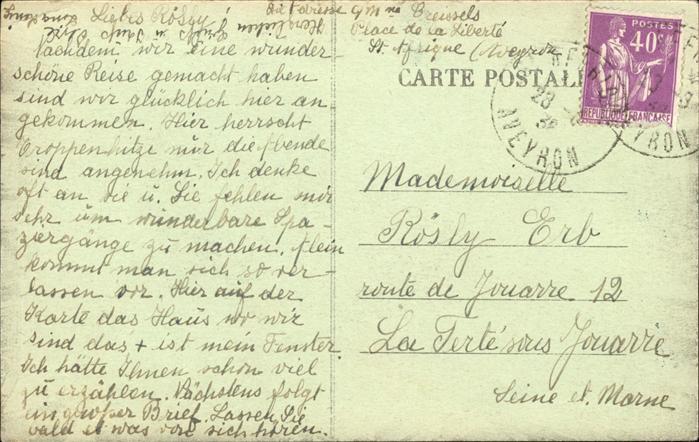 Liebes Rösly!
Nachdem wir eine wunder-
schöne Reise gemacht haben
sind wir glücklich hier an-
gekommen. Hier herrscht
Troppenhitze nur die Abende
sind angenehm. Ich denke
oft an Sie u. Sie fehlen mir
sehr um wunderbare Spa-
ziergänge zu machen. Allein
kommt man sich so ver-
lassen vor. Hier auf der
Karte das Haus wo wir
sind das + ist mein Fenster.
Ich hätte Ihnen schon viel
zu erzählen. Nächstens folgt
ein grosser Brief. Lassen Sie
bald etwas von sich hören.
Herzlichen
Gruss u.
Adresse Mme Breussels
Place de la Liberté
St. Afrique (Aveyron)
CARTE POSTALE
POSTES
40c
REPUBLIQUE FRANÇAISE
23
AVEYRON
Mademoiselle
Rösly Erb
route de Jouarre 12
La Ferté sous Jouarre
Seine et Marne